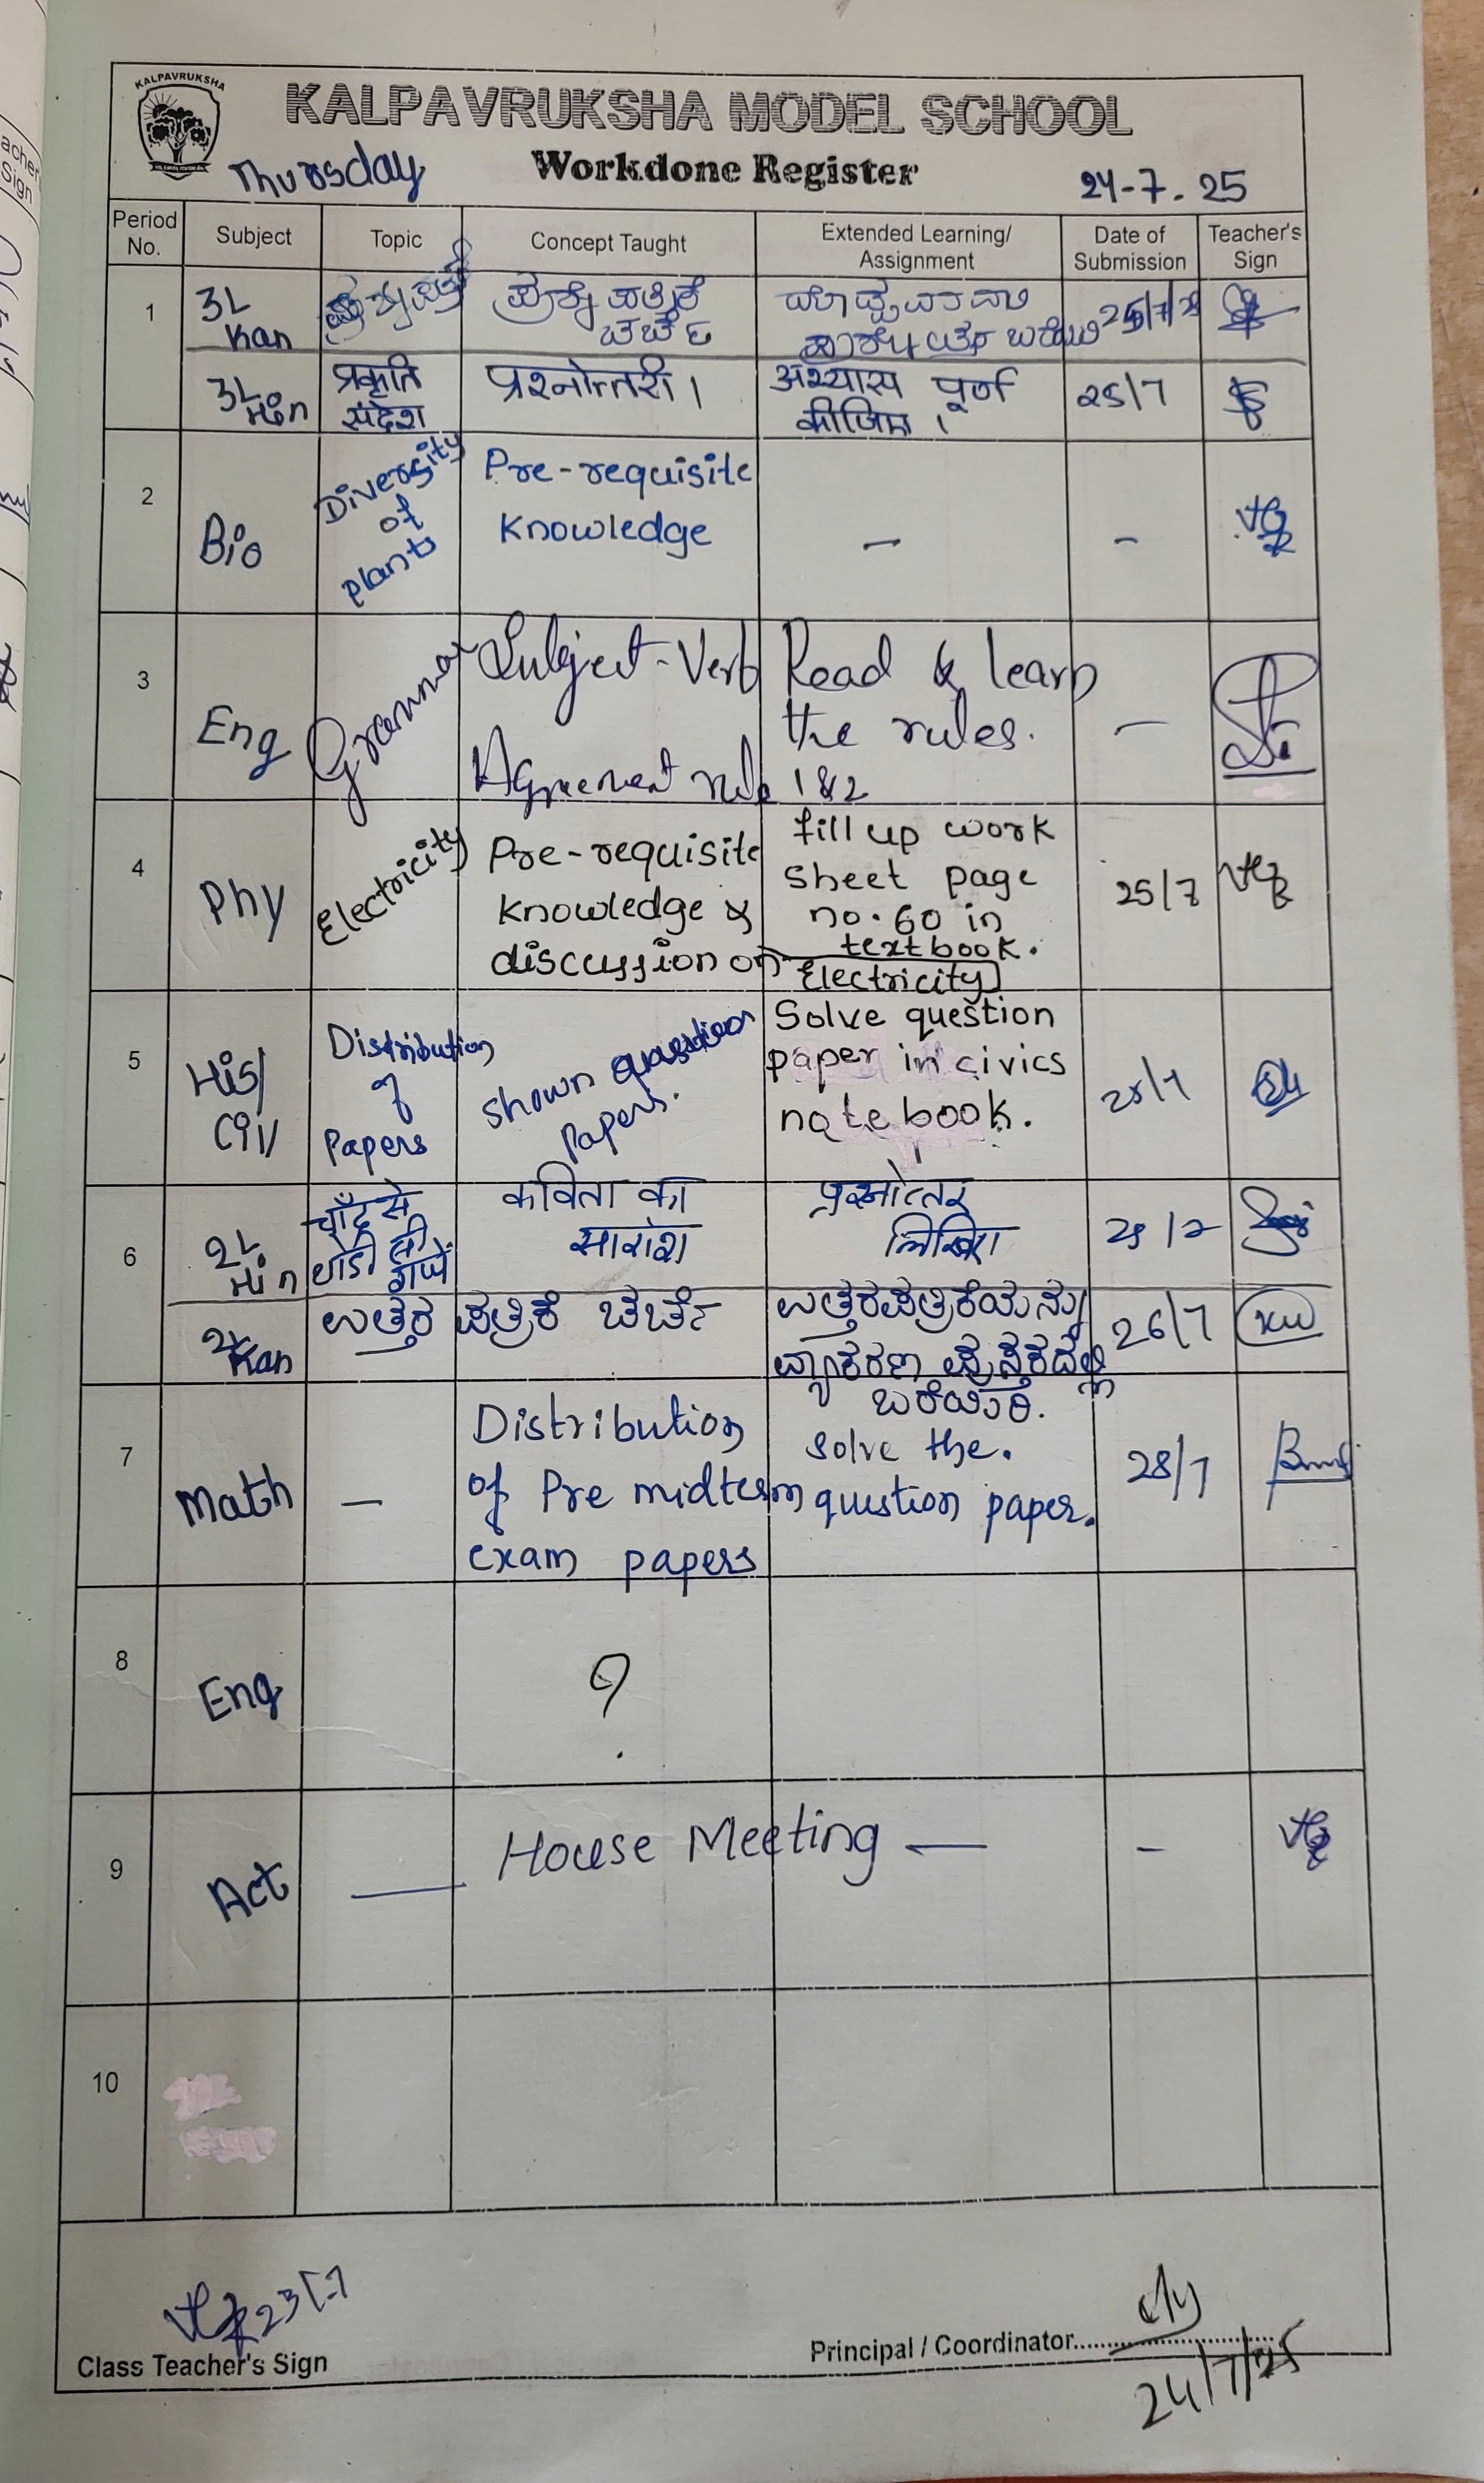 KALPAVRUKSHA
KALPAVRUKSHA MODEL SCHOOL
Workdone Register
Thursday
24-7-25
Period No.
Subject
Topic
Concept Taught
Extended Learning/ Assignment
Date of Submission
Teacher's Sign
1
3L
Kan
ಪ್ರಶ್ನೆ ಪತ್ರಿಕೆ
ಚರ್ಚೆ
3L
Hin
प्रकृति
संदेश
प्रश्नोत्तरी।
अभ्यास पूर्ण
कीजिए।
25/7
2
Bio
Diversity
of
plants
Pre-requisite
knowledge
-
-
3
Eng
Grammar
Subject-Verb
Agreement rule
Read & learn
the rules.
1 & 2
-
4
Phy
Electricity
Pre-requisite
knowledge &
discussion on
Electricity
fill up work
sheet page
no. 60 in
textbook.
25/7
5
His/
Civ
Distribution
of
Papers
shown question
Papers.
Solve question
paper in civics
note book.
6
2L
Hin
चाँद से
थोडी सी
गप्पें
कविता का
सारांश
प्रश्नोत्तर
लिखिए
2L
Kan
ಉತ್ತರ ಪತ್ರಿಕೆ ಚರ್ಚೆ
ಉತ್ತರಪತ್ರಿಕೆಯನ್ನು
ವ್ಯಾಕರಣ ಪುಸ್ತಕದಲ್ಲಿ
ಬರೆಯಿರಿ.
26/7
7
Math
-
Distribution
of Pre midterm
exam papers
solve the.
question paper.
28/7
8
Eng
?
9
Act
-
House Meeting -
-
10
23/7
Class Teacher's Sign
Principal / Coordinator
24/7/25